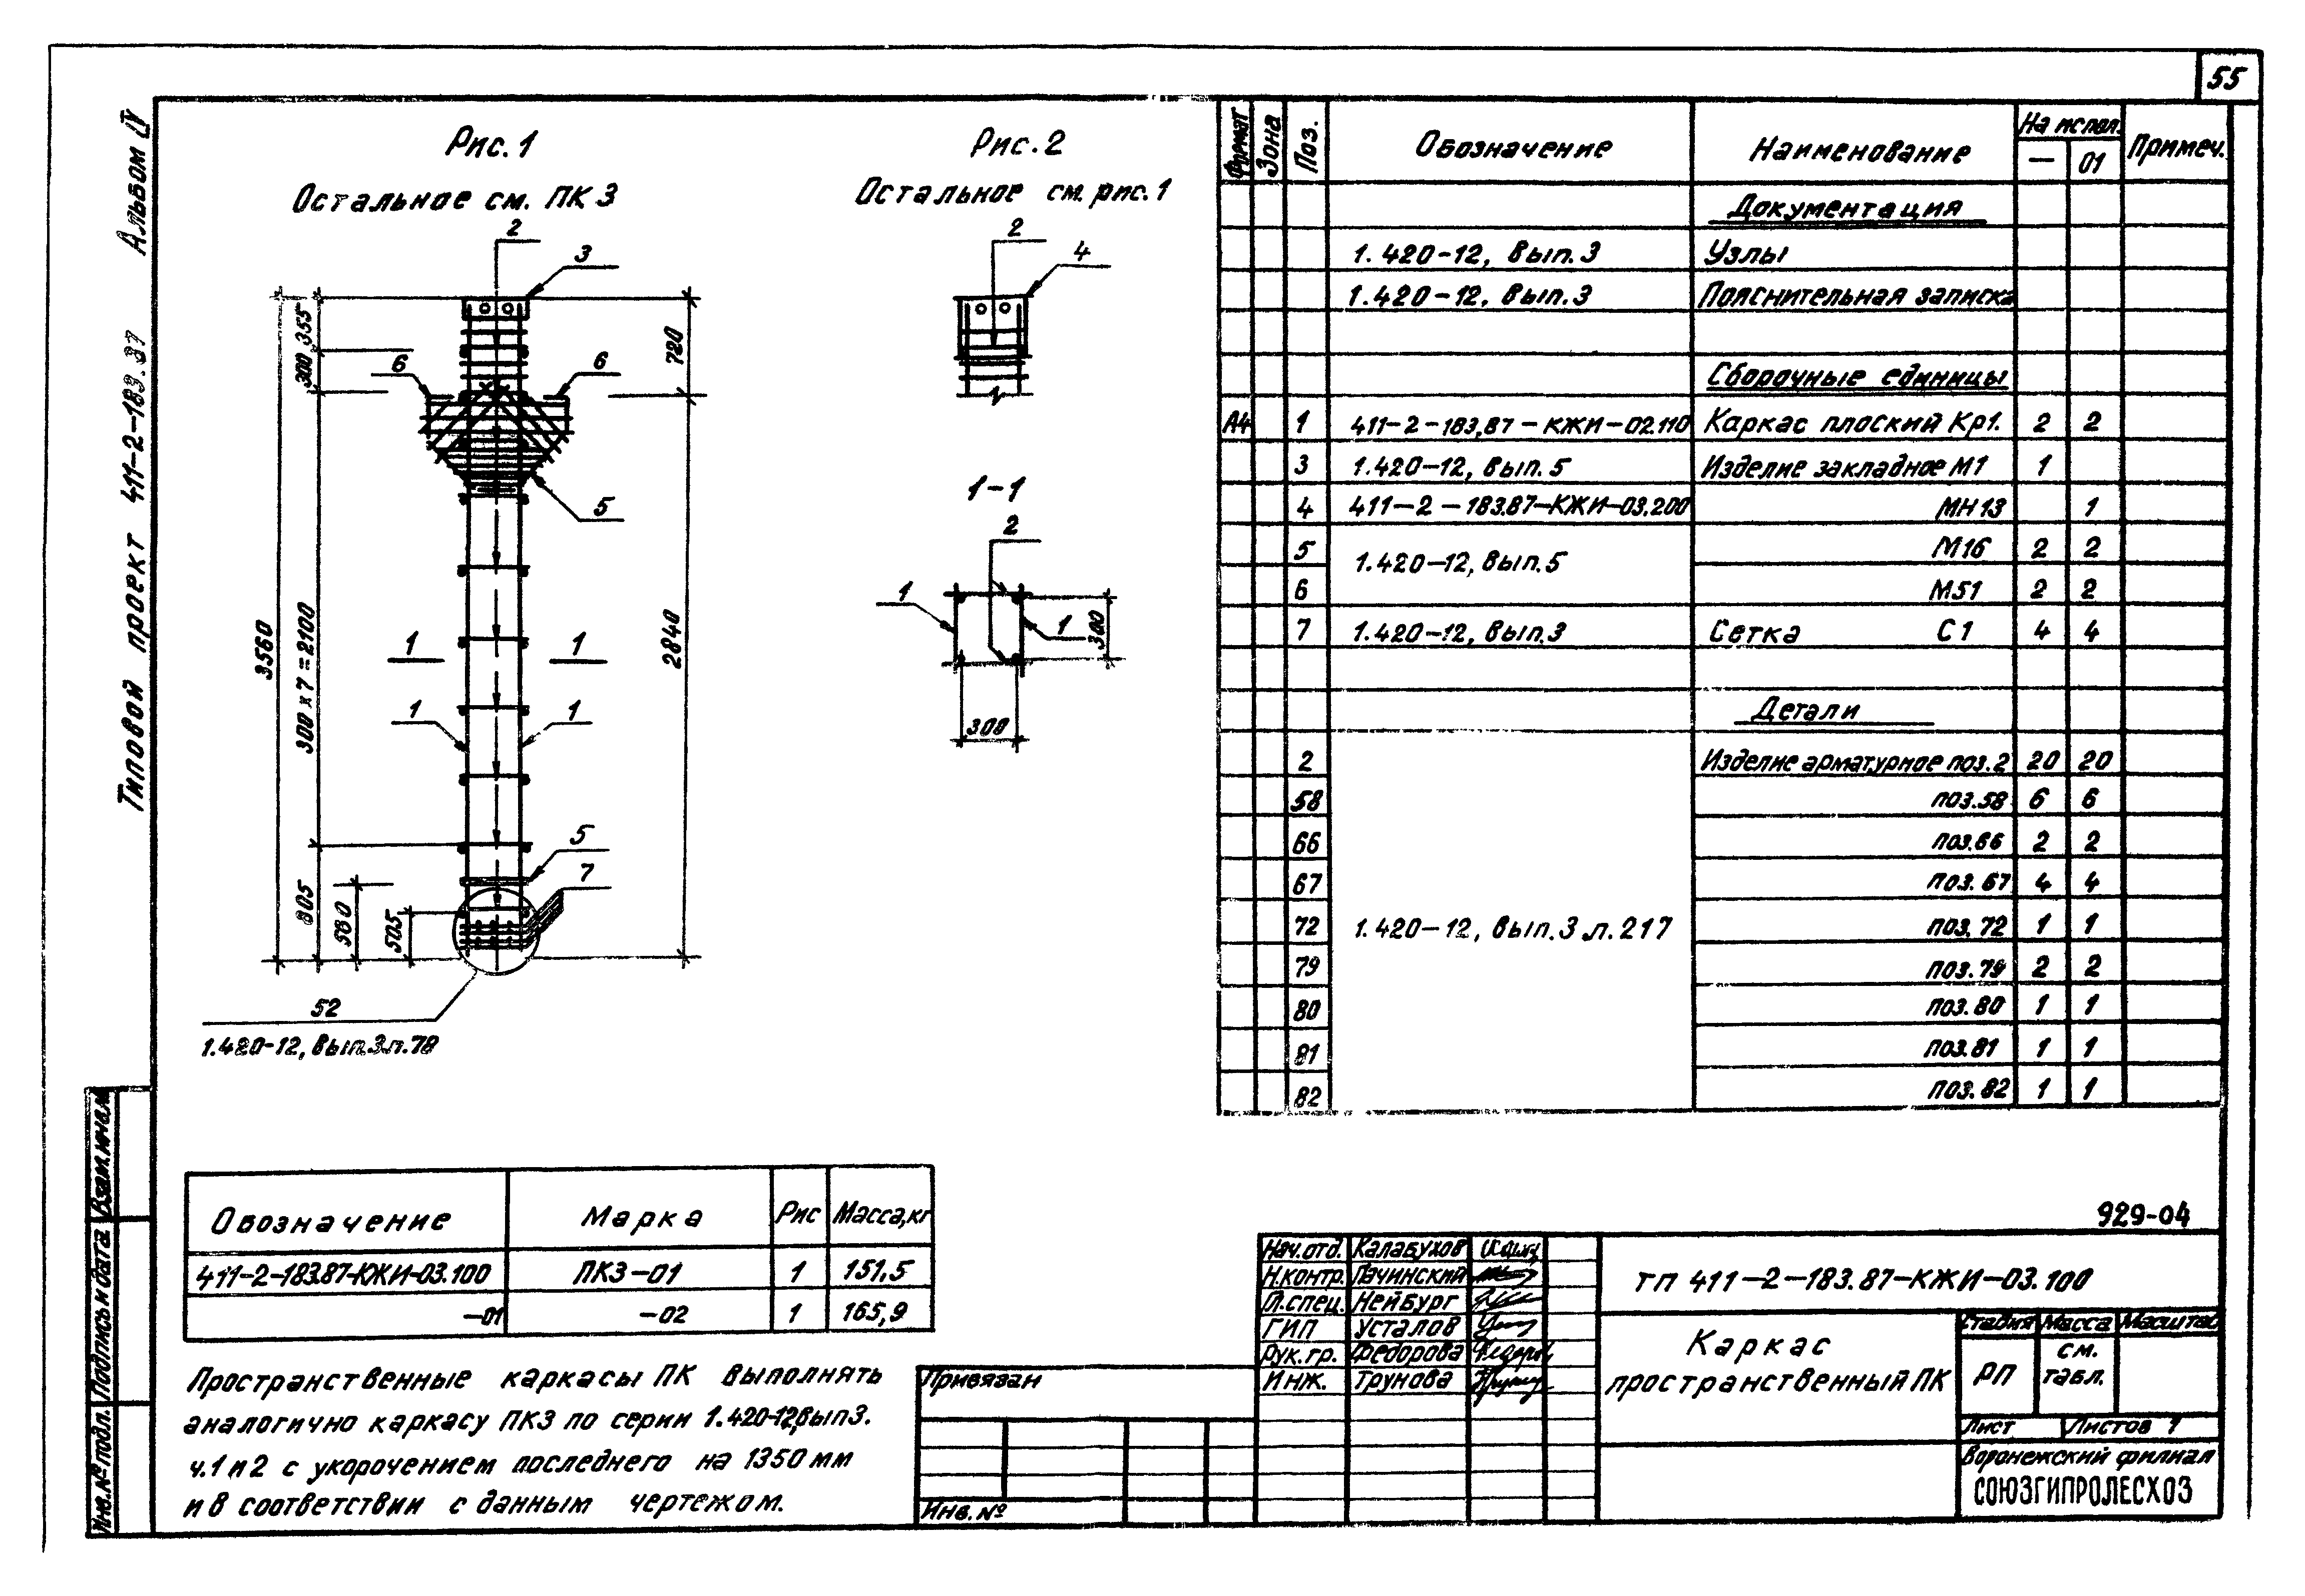 55
Альбом IV
Типовой проект 411-2-183.87
Рис. 1
Остальное см. ПК 3
2
3
6
6
5
355
300
300 х 7 = 2100
3560
805
580
505
720
2840
1
1
1
1
5
7
52
1.420-12, вып.3 л.78
Рис. 2
Остальное см. рис. 1
2
4
1-1
2
1
1
300
300
Формат
Зона
Поз.
Обозначение
Наименование
На испол.
—
01
Примеч.
Документация
1.420-12, вып. 3 Узлы
1.420-12, вып. 3 Пояснительная записка
Сборочные единицы
А4 1 411-2-183,87-КЖИ-02.110 Каркас плоский Кр1. 2 2
3 1.420-12, вып. 5 Изделие закладное М1 1
4 411-2-183.87-КЖИ-03.200 МН13 1
5 1.420-12, вып. 5 М16 2 2
6 М51 2 2
7 1.420-12, вып.3 Сетка С1 4 4
Детали
2 Изделие арматурное поз. 2 20 20
58 поз.58 6 6
66 поз.66 2 2
67 поз. 67 4 4
72 1.420-12, вып. 3 л. 217 поз. 72 1 1
79 поз. 79 2 2
80 поз. 80 1 1
81 поз. 81 1 1
82 поз. 82 1 1
Обозначение Марка Рис Масса, кг
411-2-183.87-КЖИ-03.100 ПК3-01 1 151,5
-01 -02 1 165,9
Пространственные каркасы ПК выполнять
аналогично каркасу ПК3 по серии 1.420-12, вып3.
ч.1 и 2 с укорочением последнего на 1350 мм
и в соответствии с данным чертежом.
Взам.инв.№
Подпись и дата
Инв.№ подл.
Привязан
Инв. №
929-04
Нач.отд. Калабухов
Н.контр. Пачинский
Гл.спец. Нейбург
ГИП Усталов
Рук. гр. Федорова
Инж. Трунова
ТП 411-2-183.87-КЖИ-03.100
Каркас
пространственный ПК
Стадия Масса Масштаб
РП
см.
табл.
Лист Листов 1
Воронежский филиал
СОЮЗГИПРОЛЕСХОЗ